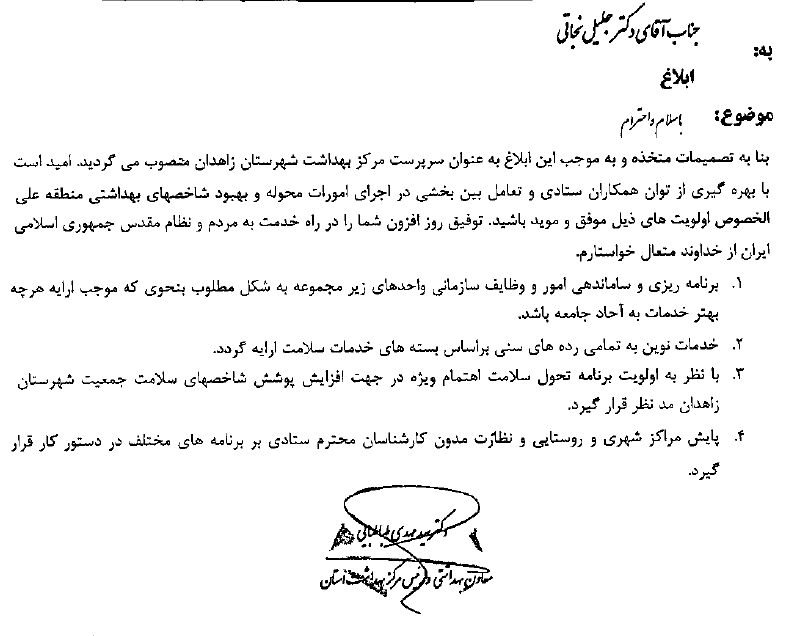 جناب آقای دکتر جلیل نجاتی
به:
ابلاغ
موضوع:
باسلام و احترام
بنا به تصمیمات متخذه و به موجب این ابلاغ به عنوان سرپرست مرکز بهداشت شهرستان زاهدان منصوب می گردید. امید است
با بهره گیری از توان همکاران ستادی و تعامل بین بخشی در اجرای امورات محوله و بهبود شاخصهای بهداشتی منطقه علی
الخصوص اولویت های ذیل موفق و موید باشید. توفیق روز افزون شما را در راه خدمت به مردم و نظام مقدس جمهوری اسلامی
ایران از خداوند متعال خواستارم.
۱. برنامه ریزی و ساماندهی امور و وظایف سازمانی واحدهای زیر مجموعه به شکل مطلوب بنحوی که موجب ارایه هرچه
بهتر خدمات به آحاد جامعه باشد.
۲. خدمات نوین به تمامی رده های سنی براساس بسته های خدمات سلامت ارایه گردد.
۳. با نظر به اولویت برنامه تحول سلامت اهتمام ویژه در جهت افزایش پوشش شاخصهای سلامت جمعیت شهرستان
زاهدان مد نظر قرار گیرد.
۴. پایش مراکز شهری و روستایی و نظارت مدون کارشناسان محترم ستادی بر برنامه های مختلف در دستور کار قرار
گیرد.
دکتر سید مهدی طباطبایی
معاون بهداشتی و رئیس مرکز بهداشت استان